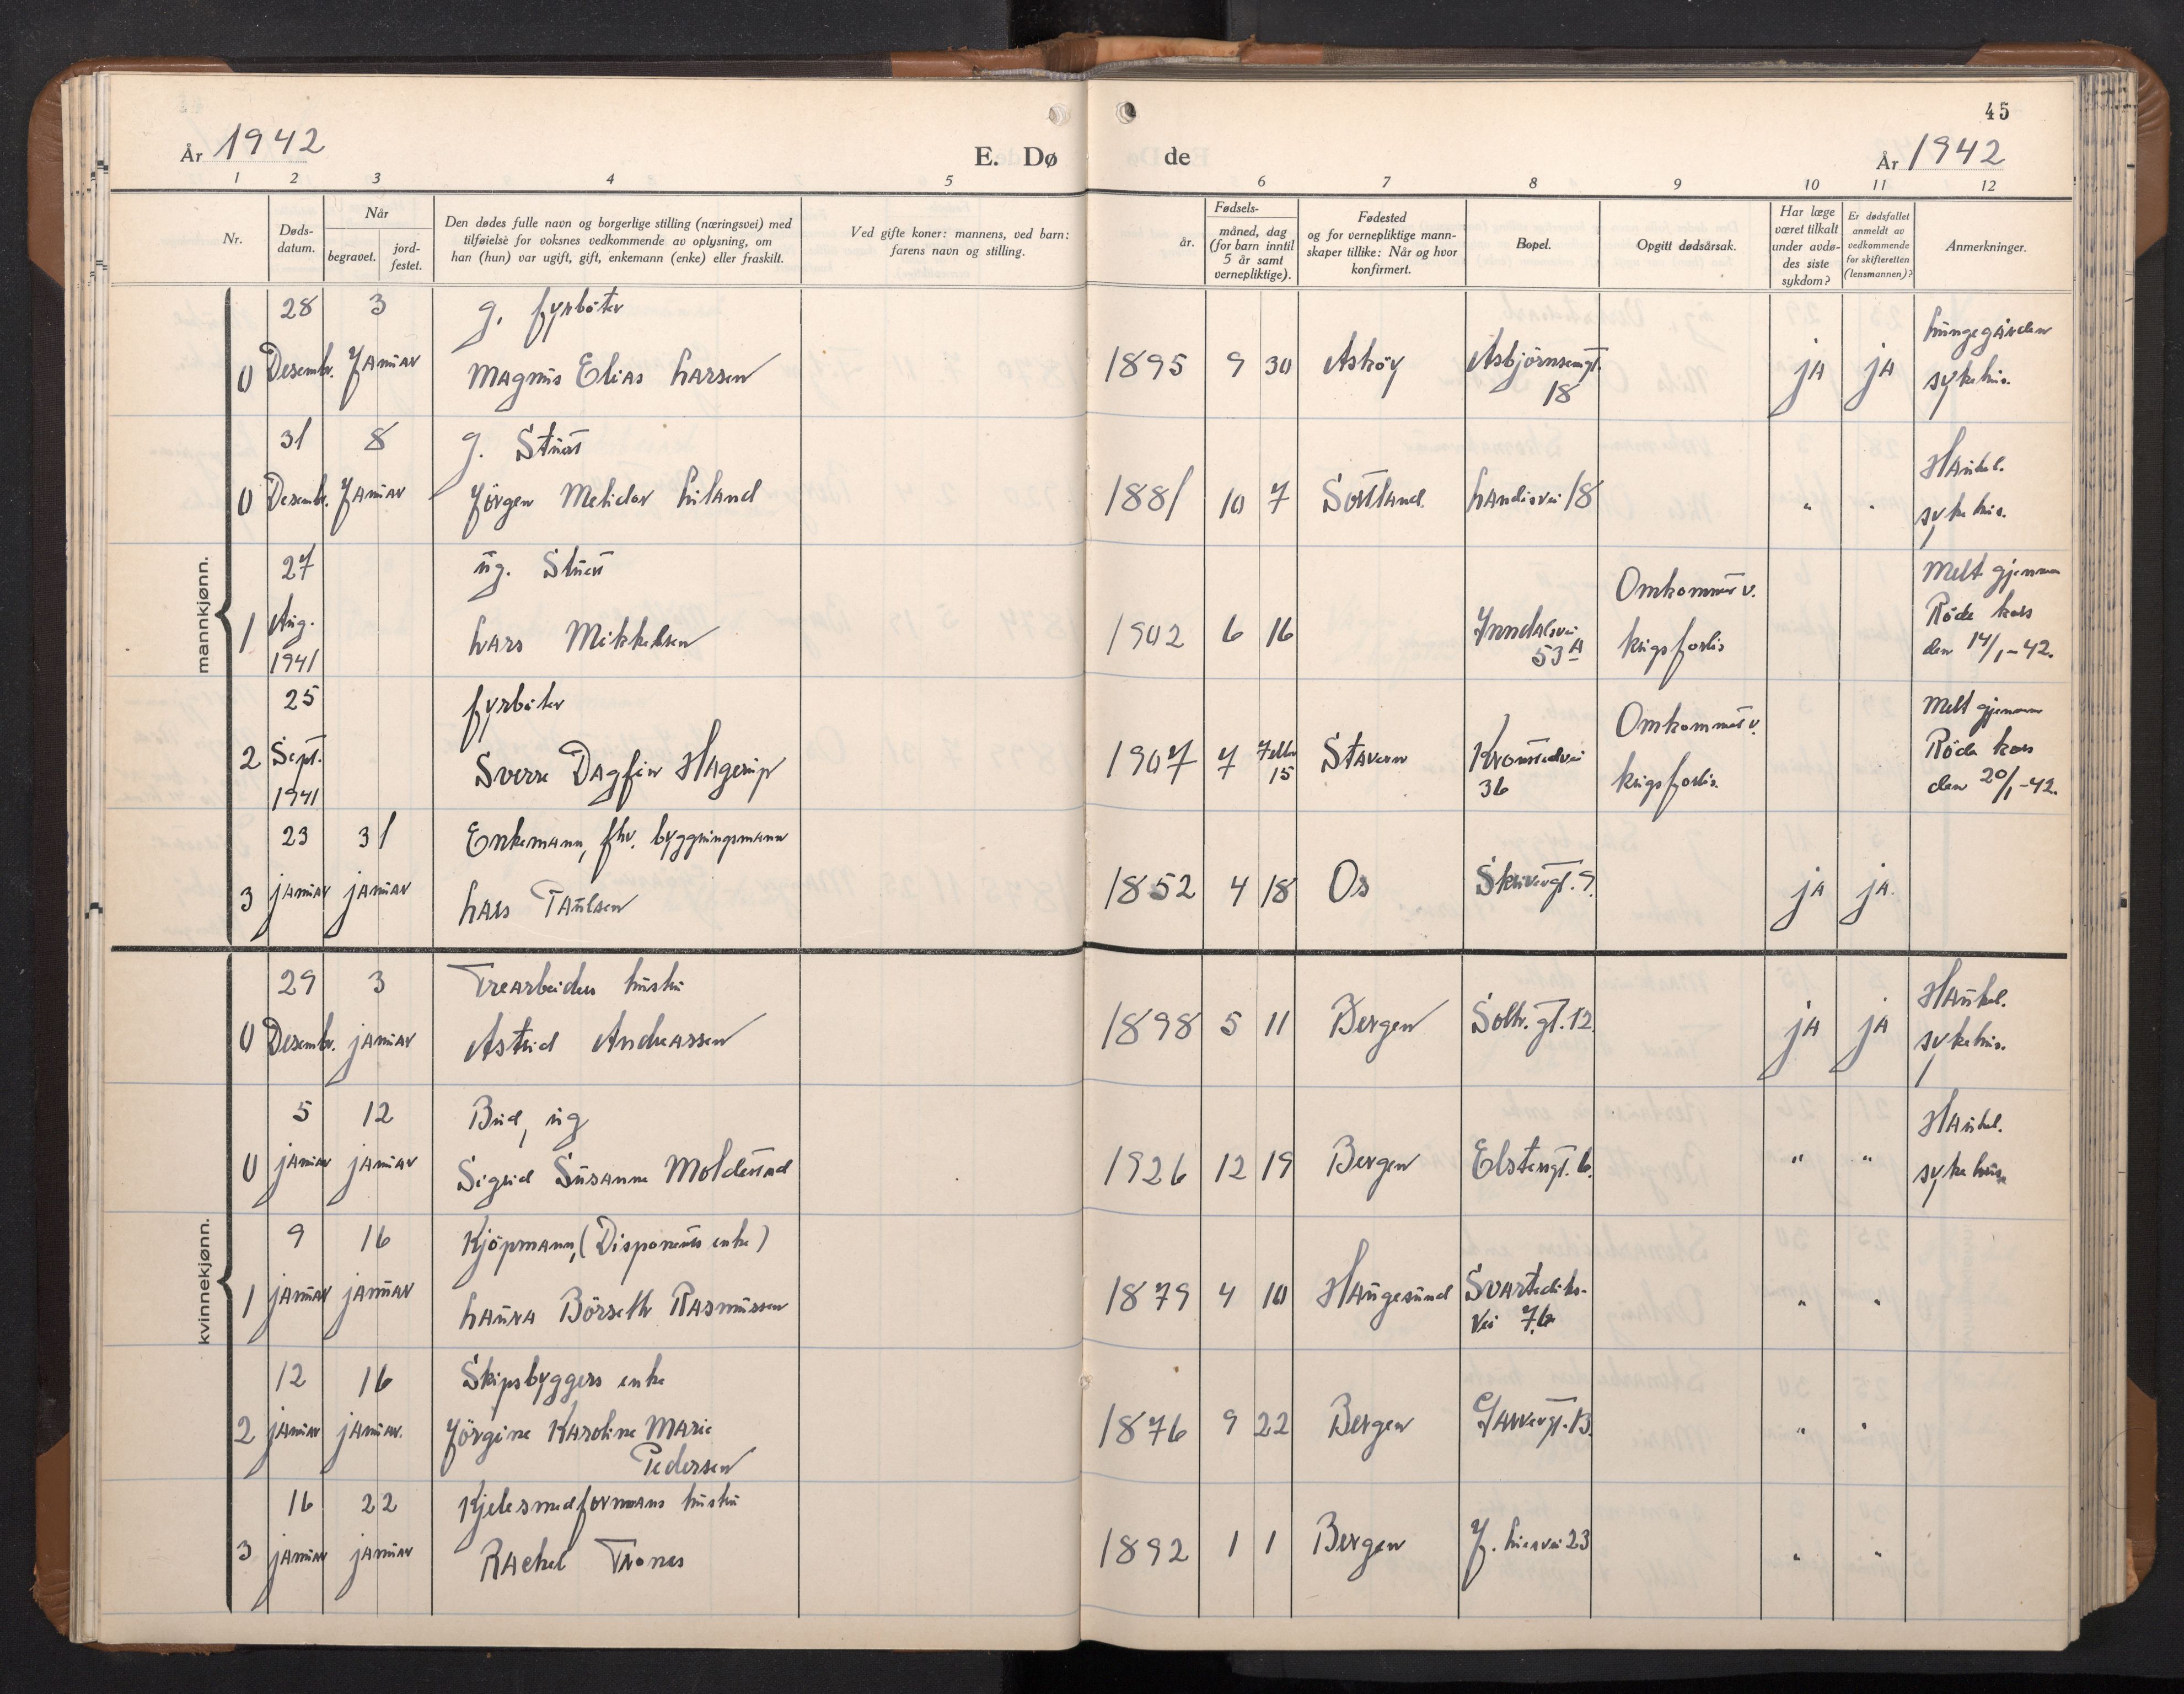 45
År 1942
E. Dø de
År 1942
1 2 3 4 5 6 7 8 9 10 11 12
Nr.
Døds-
datum.
Når
begravet.
jord-
festet.
Den dødes fulle navn og borgerlige stilling (næringsvei) med
tilføielse for voksnes vedkommende av oplysning, om
han (hun) var ugift, gift, enkemann (enke) eller fraskilt.
Ved gifte koner: mannens, ved barn:
farens navn og stilling.
Fødsels-
år.
måned, dag
(for barn inntil
5 år samt
vernepliktige).
Fødested
og for vernepliktige mann-
skaper tillike: Når og hvor
konfirmert.
Bopel.
Opgitt dødsårsak.
Har læge
været tilkalt
under avdø-
des siste
sykdom?
Er dødsfallet
anmeldt av
vedkommende
for skifteretten
(lensmannen)?
Anmerkninger.
mannkjønn.
28 3 g. fyrbøter
0 Desembr. Januar Magnus Elias Larsen 1895 9 30 Askøy Asbjørnsensgt. 18 ja ja Lungegården sykehus.
31 8 g. Stuert
0 Desembr. Januar Jörgen Melidor Liland 1881 10 7 Sortland Landåsvei 18 " " Haukel. sykehus.
27 ug. Stuert
1 Aug. 1941 Lars Mikkelsen 1902 6 16 Ynndalsvei 53 A Omkommet v. krigsforlis Melt gjennem Røde kors den 14/1-42.
25 fyrbøter
2 Sept. 1941 Sverre Dagfin Hagerup 1907 7 15 Stavern Kronstadvei 36 Omkommet v. krigsforlis. Melt gjennem Røde kors den 20/1-42.
23 31 Enkemann, fhv. bygningsmann
3 januar januar Lars Paulsen 1852 4 18 Os Skrivergt. 9. ja ja.
kvinnekjønn.
29 3 Trearbeiders hustru
0 Desembr. januar Astrid Andreassen 1898 5 11 Bergen Solhr. gt. 12. ja ja Haukel. sykehus.
5 12 Bud, ug
0 januar januar Sigrid Susanne Moldestad 1926 12 19 Bergen Elstersgt. 6. " " Haukel. sykehus
9 16 Kjöpmann, (Disponents enke)
1 januar januar Laura Börseth Rasmussen 1879 4 10 Haugesund Svartediks- vei 76 " "
12 16 Skipsbyggers enke
2 januar januar. Jörgine Karoline Marie Pedersen 1876 9 22 Bergen Garvergt. 13. " "
16 22 Kjelesmedformanns hustru
3 januar januar Rachel Trones 1892 1 1 Bergen J. Liesvei 23 " "